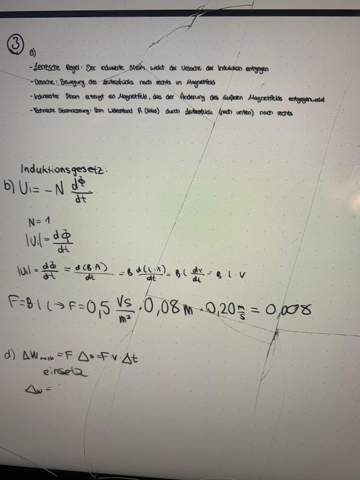 ③
a)
- Lenzsche Regel: Der induzierte Strom wirkt der Ursache der Induktion entgegen
- Ursache: Bewegung des Leiterstücks nach rechts im Magnetfeld
- Induzierte Strom erzeugt ein Magnetfeld, das der Änderung des äußeren Magnetfelds entgegenwirkt
- Technische Stromrichtung: Vom Widerstand R (links) durch Leiterstück (nach unten) nach rechts
Induktionsgesetz:
b) Ui = -N dΦ/dt
N = 1
|Ui| = dΦ/dt
|Ui| = dΦ/dt = d(B·A)/dt = B d(l·A)/dt = B l dv/dt = B · l · v
F = B l I → F = 0,5 Vs/m² · 0,08 m · 0,20 m/s = 0,008
d) ΔW = F Δs = F v Δt
einsetz
Δw =